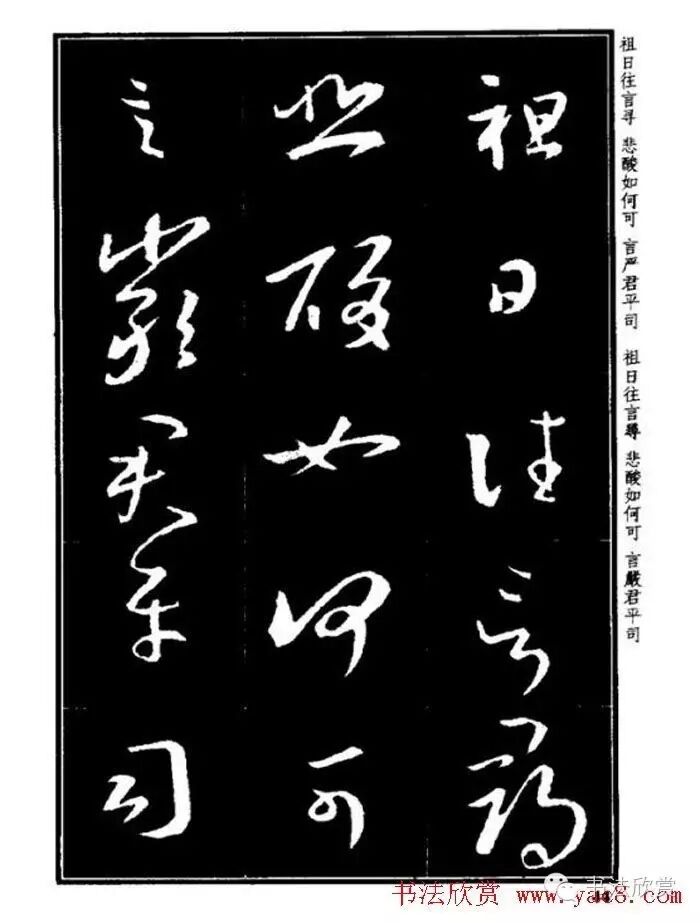 祖日往言寻 悲酸如何可 言严君平司 祖日往言尋 悲酸如何可 言嚴君平司
祖日往言尋
悲酸如何可
言嚴君平司
书法欣赏
书法欣赏 www.yac8.com